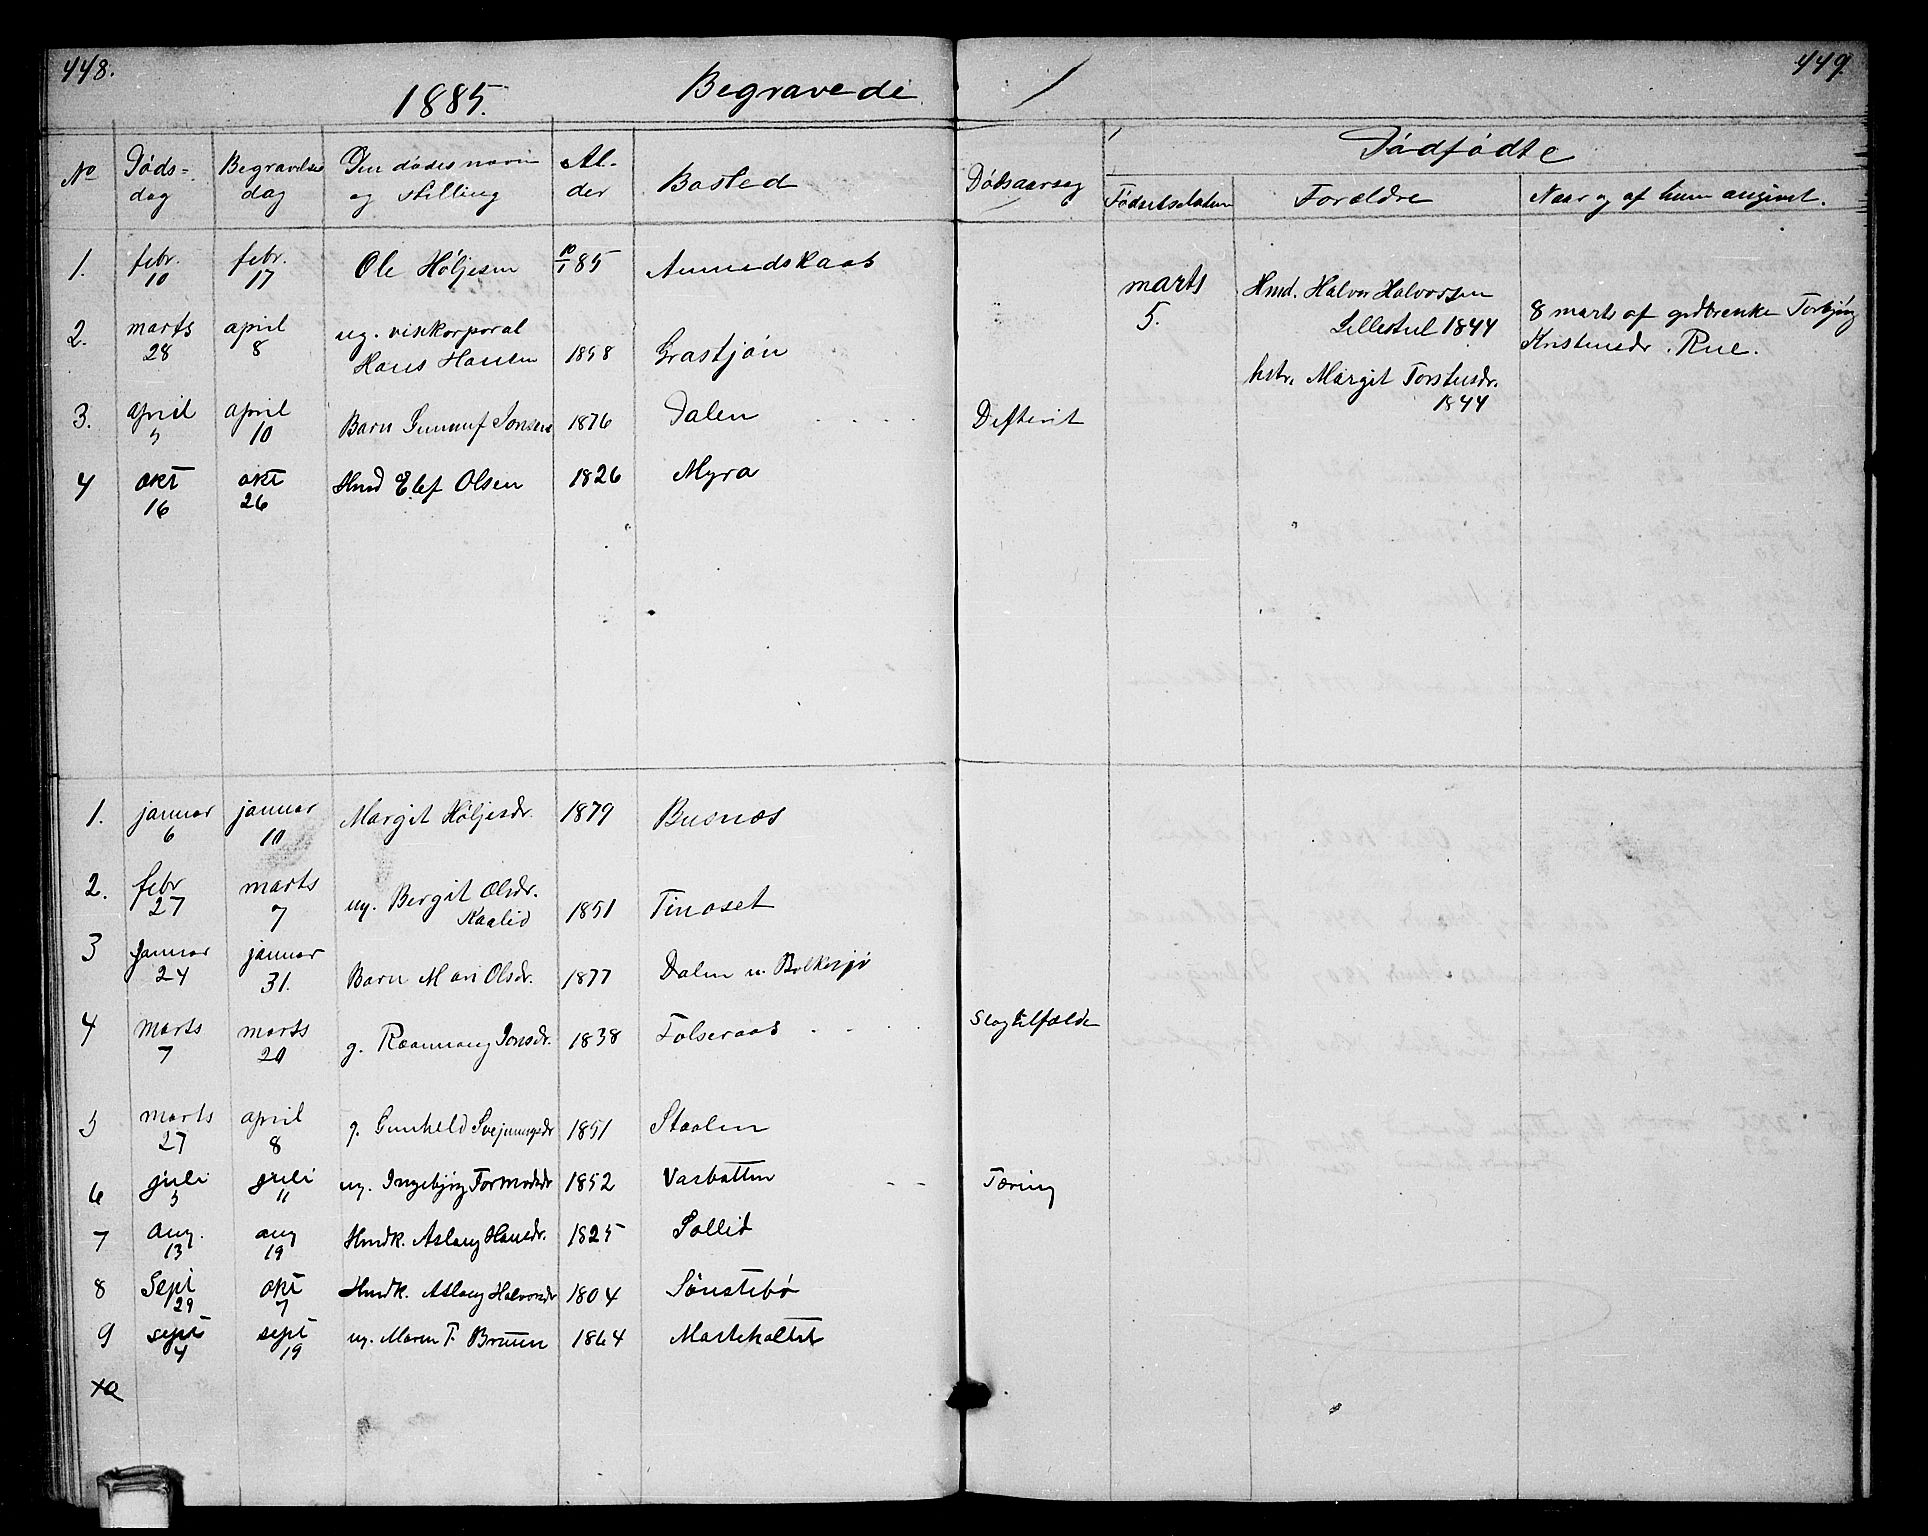 448.
449.
1885.
Begravede
No
Døds-
dag
Begravelses
dag
Den dødes navn
og stilling
Al-
der
Bosted
Dødsaarsag
Dødfødte
Fødselsdatum
Forældre
Naar og af hvem angivet.
1. febr. 10 febr. 17 Ole Høljesen 10/1 85 Aamodskaas
2. marts 28 april 8 ug. visekorporal
Hans Hansen 1858 Grastjøn
3. april 5 april 10 Barn Gunnuf Jonsen 1876 Dalen Difterit
4 okt 16 okt 26 Hmd Elef Olsen 1826 Myra
marts
5.
Hmd. Halvor Halvorsen
Lillestul 1844
hstr. Margit Torstensdr.
1844
8 marts af grdbrenke Torbjørg
Kristensdr. Rue.
1. januar 6 januar 10 Margit Høljesdr. 1879 Busnæs
2. febr 27 marts 7 ug. Bergit Olsdr.
Kaalid 1851 Tinoset
3 januar 24 januar 31. Barn Mari Olsdr. 1877 Dalen u. Bolkesjø
4 marts 7 marts 20 g. Rannaug Jonsdr. 1838 Folseraas Slagtilfælde
5 marts 27 april 8 g. Gunhild Svejnungsdr 1851 Staalen
6 juli 5 juli 11 ug. Ingebjørg Tormodsdr 1852 Vasbotten Tæring
7 aug. 13 aug 19 Hmdk. Aslaug Hansdr. 1825 Sollid
8 Sept 29 okt 7 Hmdk. Aslaug Halvorsdr 1804 Sønstebø
9 sept 4 sept 19 ug. Maren T. Bruun 1864 Marteholtet